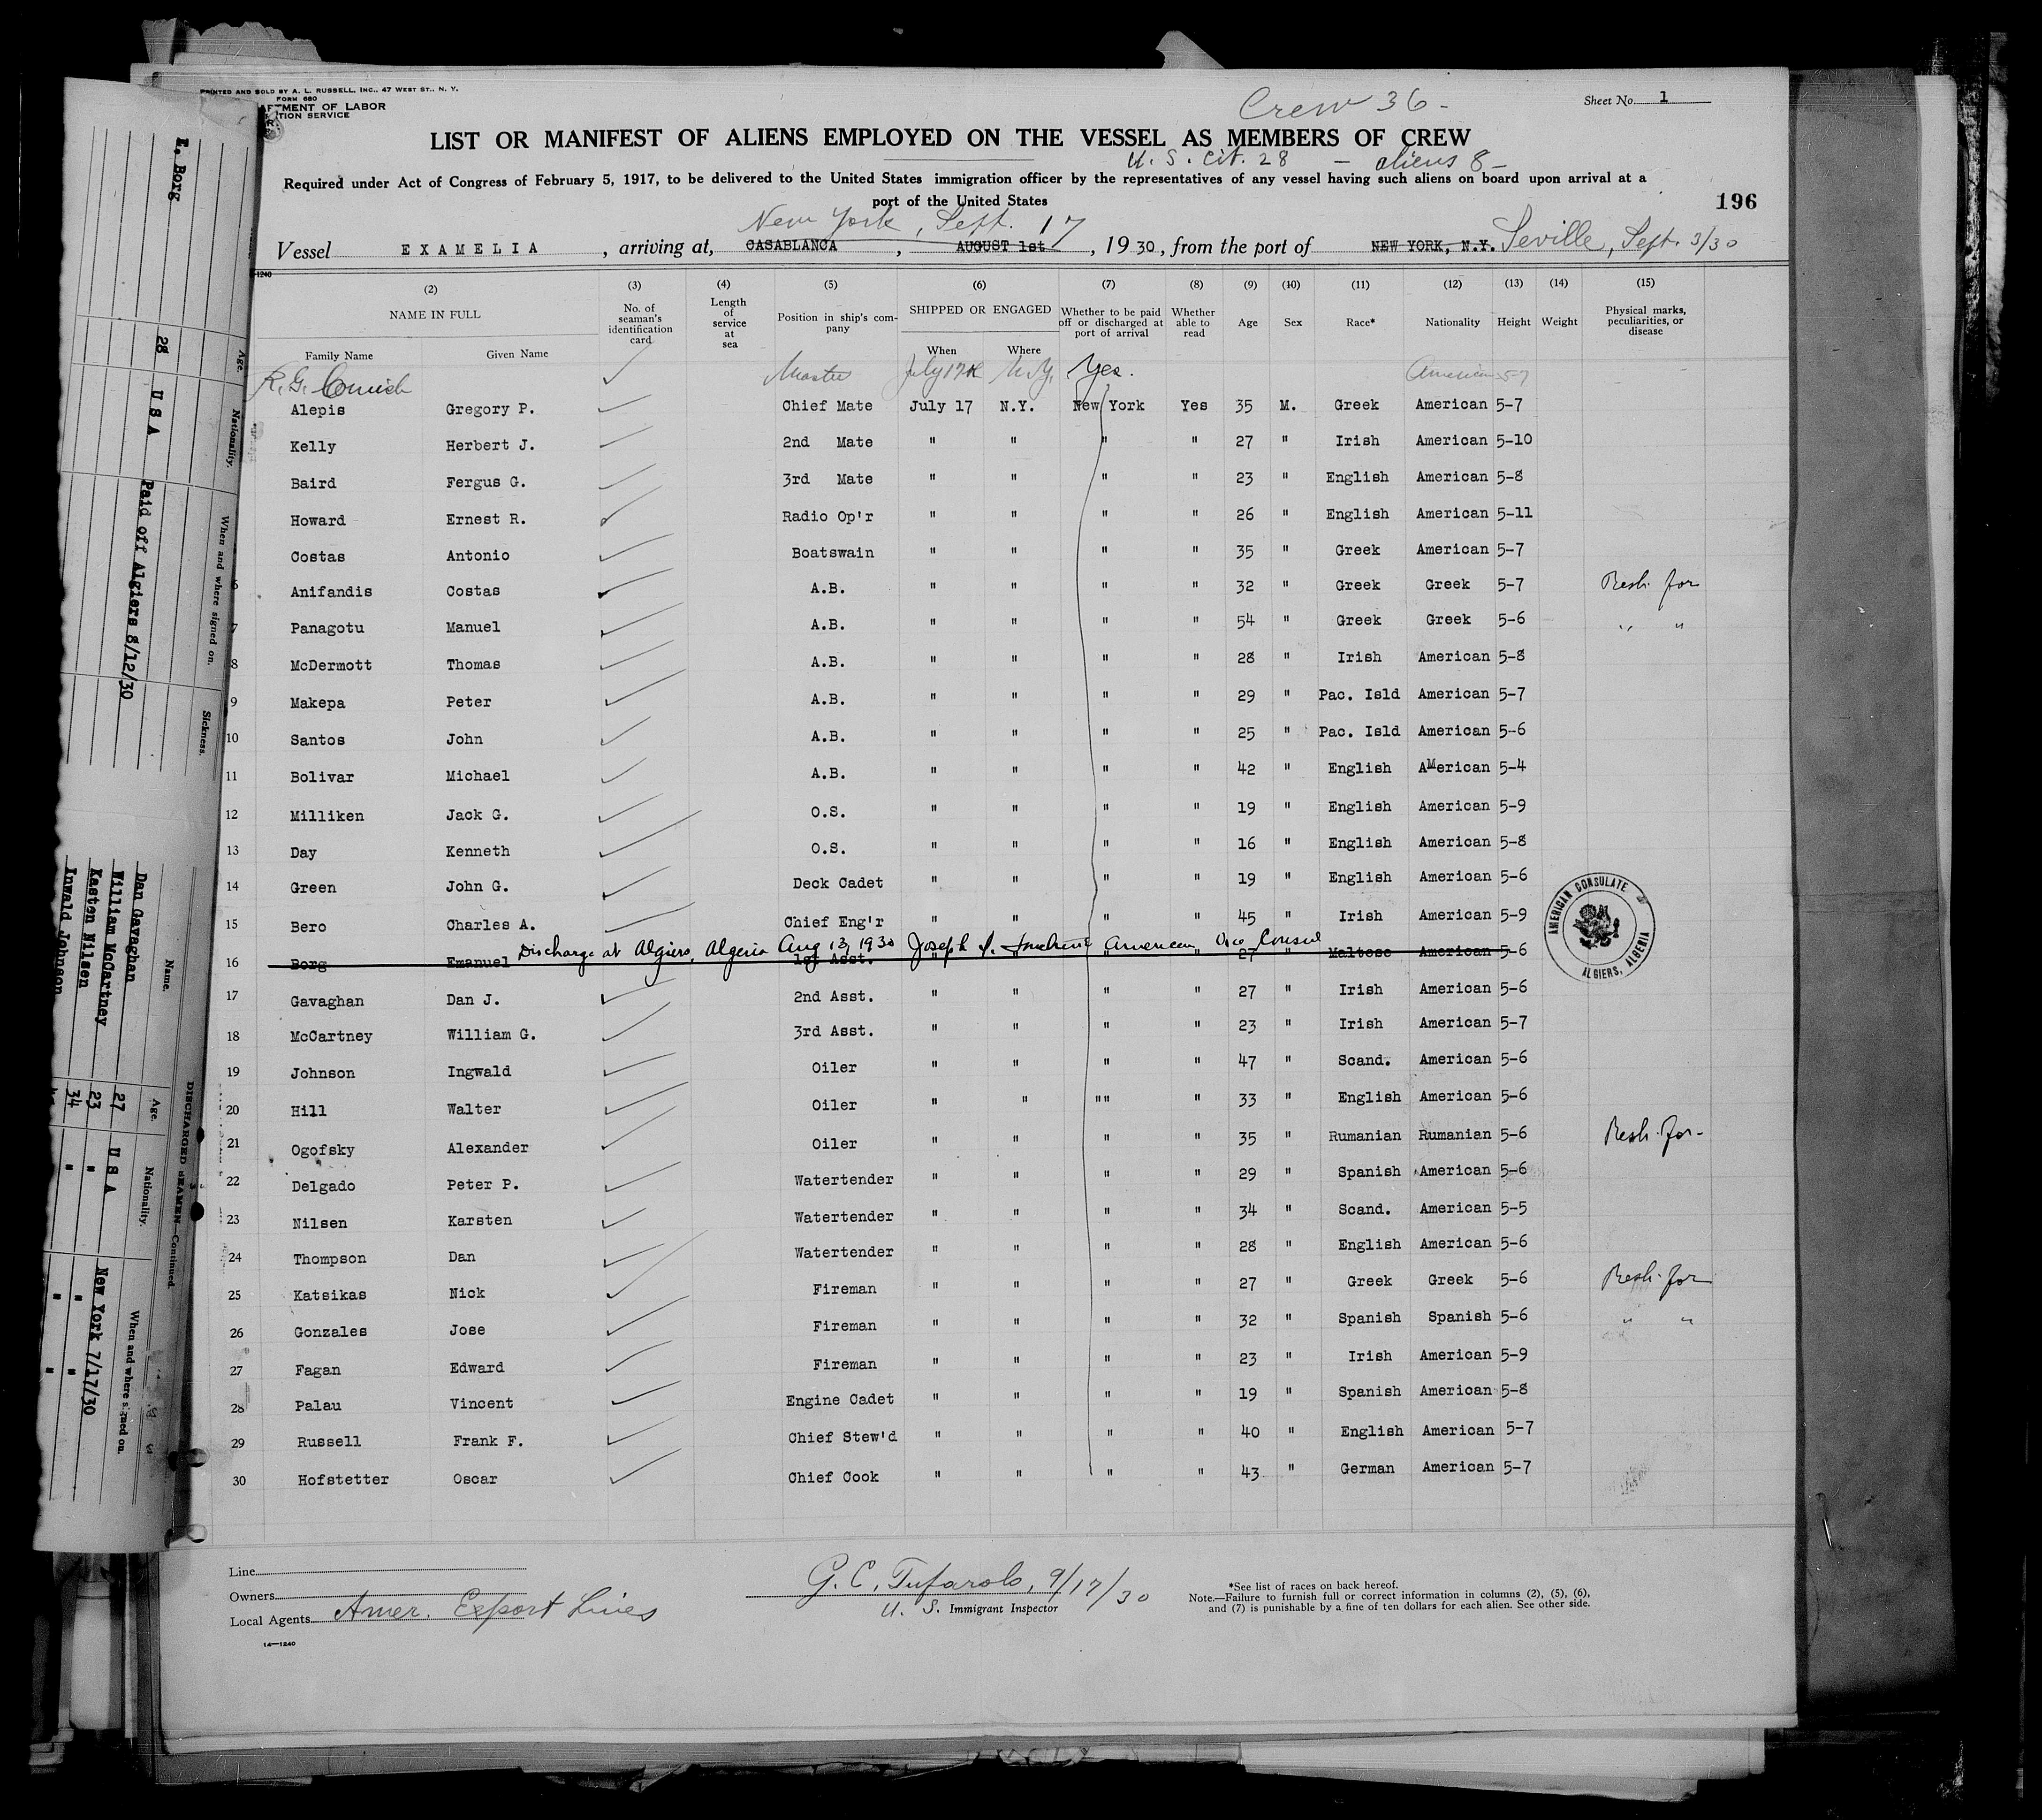 PRINTED AND SOLD BY A. L. RUSSELL, INC., 47 WEST ST., N. Y.
FORM 680
TMENT OF LABOR
TION SERVICE
Crew 36 -
Sheet No. 1
LIST OR MANIFEST OF ALIENS EMPLOYED ON THE VESSEL AS MEMBERS OF CREW
U. S. Cit. 28 - aliens 8 -
Required under Act of Congress of February 5, 1917, to be delivered to the United States immigration officer by the representatives of any vessel having such aliens on board upon arrival at a
port of the United States
196
New York, Sept. 17
Vessel EXAMELIA, arriving at, CASABLANCA, AUGUST 1st, 1930, from the port of NEW YORK, N.Y. Seville, Sept. 3/30
1240
(2) (3) (4) (5) (6) (7) (8) (9) (10) (11) (12) (13) (14) (15)
NAME IN FULL
Family Name Given Name
No. of seaman's identification card
Length of service at sea
Position in ship's company
SHIPPED OR ENGAGED
When Where
Whether to be paid off or discharged at port of arrival
Whether able to read
Age Sex Race* Nationality Height Weight
Physical marks, peculiarities, or disease
R. G. Master July 17 N.Y. Yes. American 5-7
Alepis Gregory P. Chief Mate July 17 N.Y. New York Yes 35 M. Greek American 5-7
Kelly Herbert J. 2nd Mate " " " " 27 " Irish American 5-10
Baird Fergus G. 3rd Mate " " " " 23 " English American 5-8
Howard Ernest R. Radio Op'r " " " " 26 " English American 5-11
Costas Antonio Boatswain " " " " 35 " Greek American 5-7
6 Anifandis Costas A.B. " " " " 32 " Greek Greek 5-7 Resh. for
7 Panagotu Manuel A.B. " " " " 54 " Greek Greek 5-6 " "
8 McDermott Thomas A.B. " " " " 28 " Irish American 5-8
9 Makepa Peter A.B. " " " " 29 " Pac. Isld American 5-7
10 Santos John A.B. " " " " 25 " Pac. Isld American 5-6
11 Bolivar Michael A.B. " " " " 42 " English AMerican 5-4
12 Milliken Jack G. O.S. " " " " 19 " English American 5-9
13 Day Kenneth O.S. " " " " 16 " English American 5-8
14 Green John G. Deck Cadet " " " " 19 " English American 5-6
15 Bero Charles A. Chief Eng'r " " " " 45 " Irish American 5-9
Discharge at Algiers, Algeria Aug 13, 1930 Joseph American Vice Consul
16 Borg Emanuel 1st Asst. " " " " 27 " Maltese American 5-6
AMERICAN CONSULATE
ALGIERS, ALGERIA
17 Gavaghan Dan J. 2nd Asst. " " " " 27 " Irish American 5-6
18 McCartney William G. 3rd Asst. " " " " 23 " Irish American 5-7
19 Johnson Ingwald Oiler " " " " 47 " Scand. American 5-6
20 Hill Walter Oiler " " "" " 33 " English American 5-6
21 Ogofsky Alexander Oiler " " " " 35 " Rumanian Rumanian 5-6 Resh. for-
22 Delgado Peter P. Watertender " " " " 29 " Spanish American 5-6
23 Nilsen Karsten Watertender " " " " 34 " Scand. American 5-5
24 Thompson Dan Watertender " " " " 28 " English American 5-6
25 Katsikas Nick Fireman " " " " 27 " Greek Greek 5-6 Resh. for
26 Gonzales Jose Fireman " " " " 32 " Spanish Spanish 5-6 " "
27 Fagan Edward Fireman " " " " 23 " Irish American 5-9
28 Palau Vincent Engine Cadet " " " " 19 " Spanish American 5-8
29 Russell Frank F. Chief Stew'd " " " " 40 " English American 5-7
30 Hofstetter Oscar Chief Cook " " " " 43 " German American 5-7
Line
Owners
Local Agents Amer. Export Lines
14-1240
G. C. Tufarolo, 9/17/30
U. S. Immigrant Inspector
*See list of races on back hereof.
Note.—Failure to furnish full or correct information in columns (2), (5), (6),
and (7) is punishable by a fine of ten dollars for each alien. See other side.
Age. Nationality. When and where signed on. Sickness.
E. Borg 28 U S A Paid off Algiers 8/12/30
DISCHARGED SEAMEN—Continued.
Name. Age. Nationality. When and where signed on.
Dan Gavaghan 27 U S A New York 7/17/30
William McCartney 23 " " "
Kasten Nilsen 34 " " "
Inwald Johnson